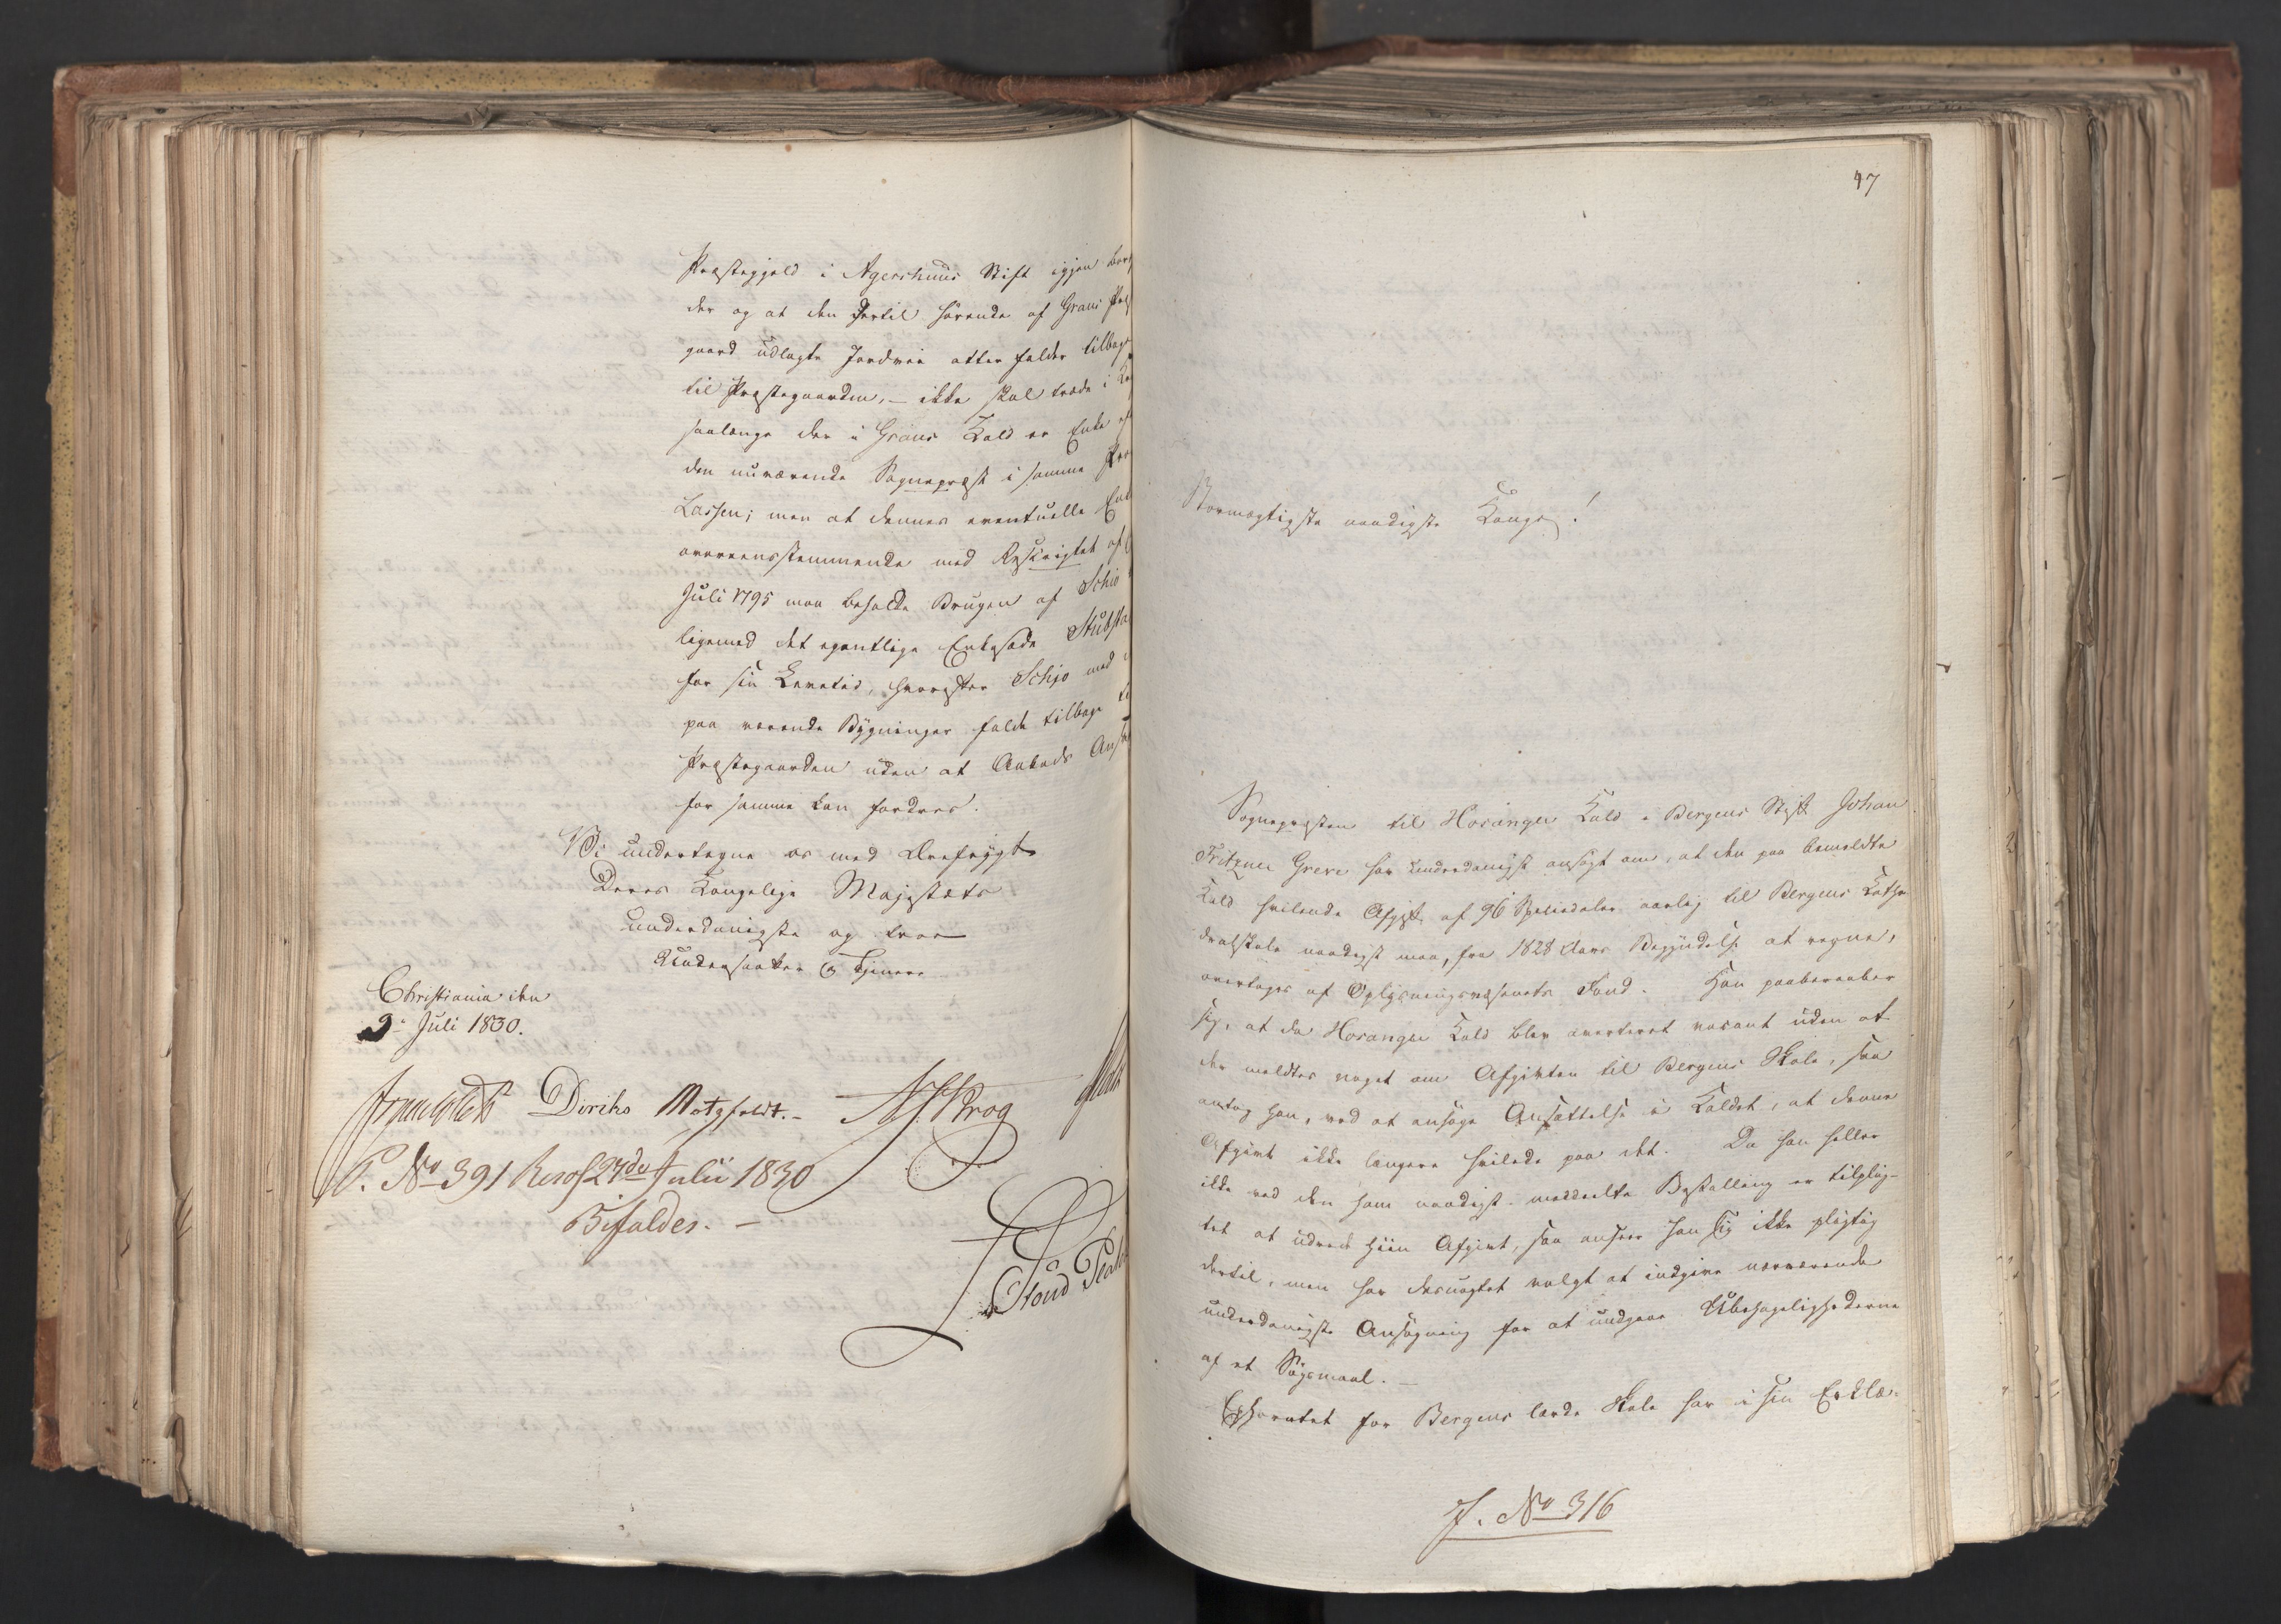 Præstegjeld i Agershuus Stift igjen
der og at den dertil hørende af Grans
gaard udlagte Jordvei atter falder tilbage
til Præstegaarden, – ikke skal træde i
saalænge der i Grans Kald er Enke
den nuværende Sognepræst i samme
Lassen; men at dennes eventuelle
overeensstemmende med Rescriptet af
Juli 1795 maa beholde Brugen af
ligemed det egentlige Enkesæde
for sin Levetid, hvorefter Schjo med
paa værende Bygninger falde tilbage
Præstegaarden uden at Aabods
for samme kan fordres.
Vi undertegne os med Ærefrygt
Deres Kongelige Majestæts
underdanigste og troe
Undersaatter & Tjenere
Christiania den
9de Juli 1830.
Diriks Motzfeldt. – Krog
P. No 391 Resol 27de Julii 1830
Bifaldes. –
47
Stormægtigste naadigste Konge!
Sognepræsten til Hosanger Kald i Bergens Stift Johan
Fritzner Greve har underdanigst ansøgt om, at den paa bemeldte
Kald hvilende Afgift af 96 Speciedaler aarlig til Bergens Kathe-
dralskole naadigst maa, fra 1828 Aars Begyndelse at regne,
overtages af Oplysningsvæsenets Fond. Han paaberaaber
sig, at da Hosanger Kald blev averteret vacant uden at
der meldtes noget om Afgivten til Bergens Skole, saa
antog han, ved at ansøge Ansættelse i Kaldet, at denne
Afgivt ikke længere hvilede paa det. Da han heller
ikke ved den ham naadigst meddeelte Bestalling er tilplig-
tet at udrede hiin Afgivt, saa anseer han sig ikke pligtig
dertil, men har desuagtet valgt at indgive nærværende
underdanigste Ansøgning for at undgaae Ubehagelighederne
af et Søgsmaal. –
Ephoratet for Bergens lærde Skole har i sin Erklæ-
J. No 316